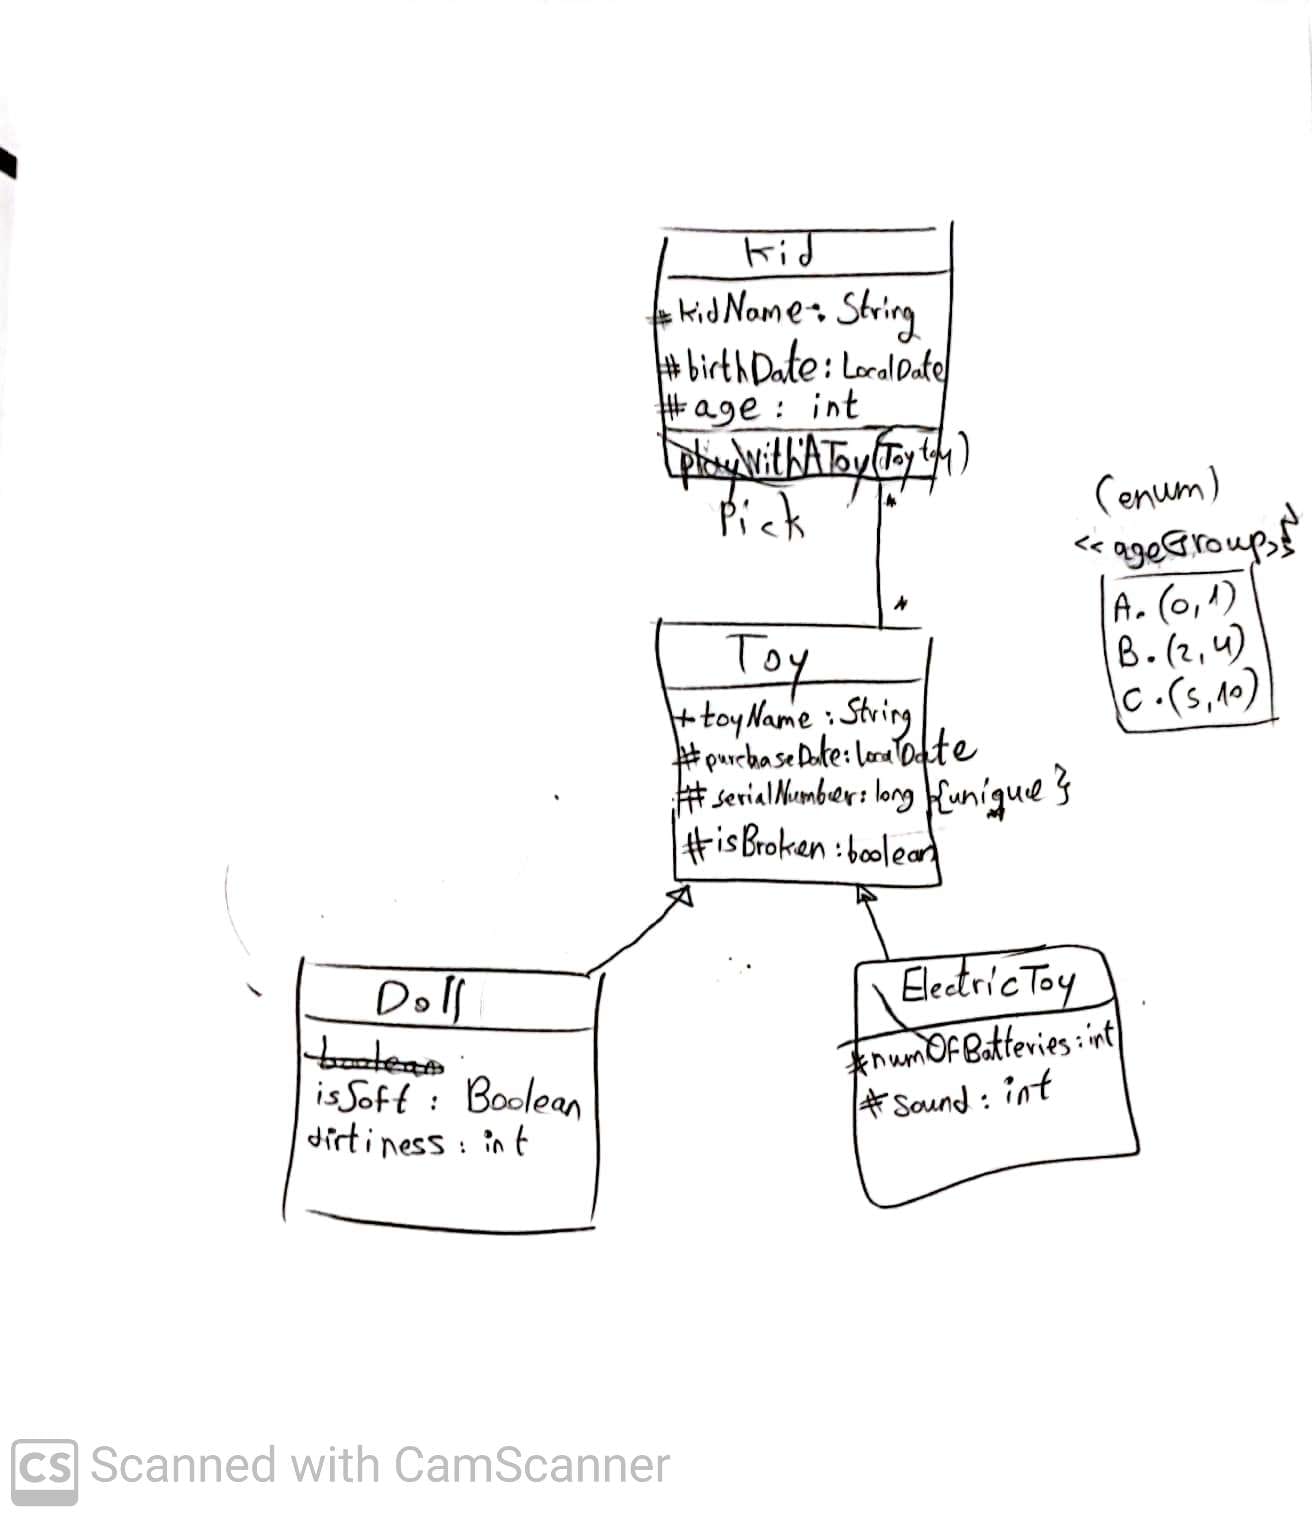 Kid
# kidName: String
# birthDate: LocalDate
# age: int
playWithAToy(Toy toy)
Pick
*
*
(enum)
<<ageGroup>>
A. (0,1)
B. (2,4)
C. (5,10)
Toy
+ toyName: String
# purchaseDate: LocalDate
# serialNumber: long {unique}
# isBroken: boolean
Doll
boolean
isSoft: Boolean
dirtiness: int
ElectricToy
# numOfBatteries: int
# sound: int
CS Scanned with CamScanner